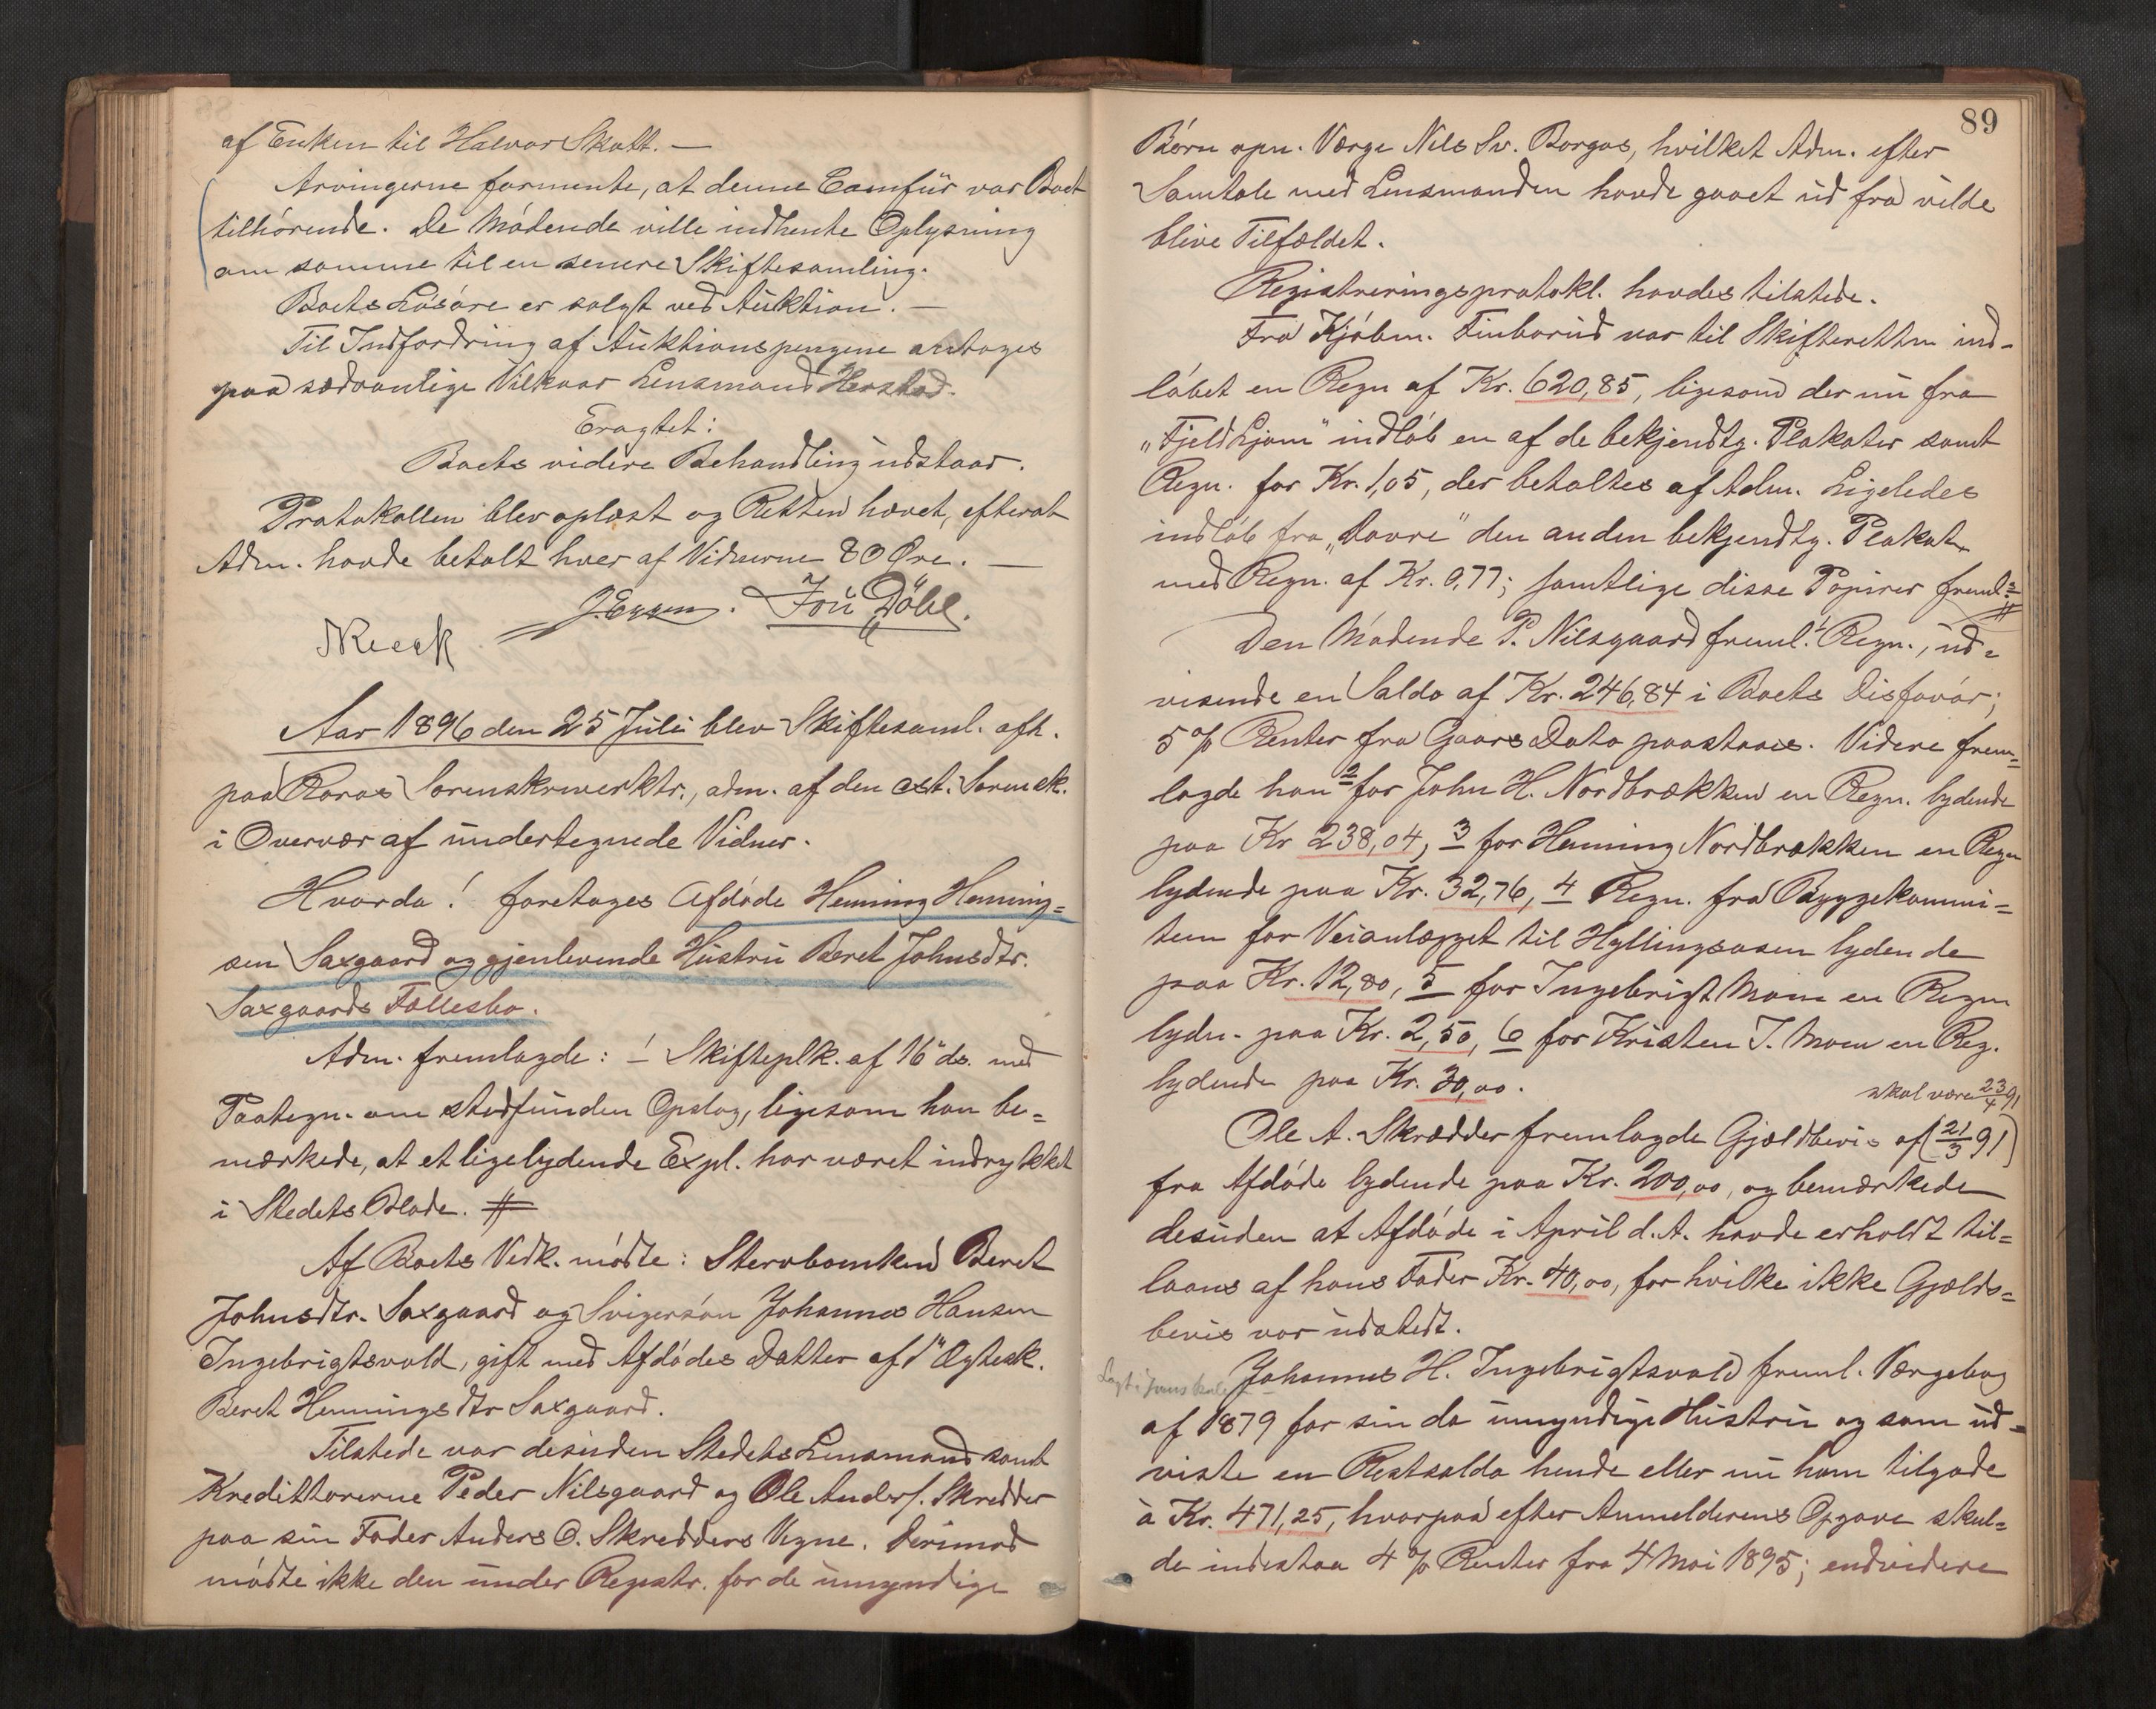 af Enken til Halvor Skott. —
Arvingerne formente, at denne Comfür var Boet
tilhørende. De Mødende ville indhente Oplysning
om samme til en senere Skiftesamling.
Boets Løsøre er solgt ved Auktion. —
Til Indfordring af Auktionspengene antages
paa sædvanlige Vilkaar Lensmand Herstad.
Eragtet:
Boets videre Behandling udstaar.
Protokollen blev oplæst og Retten hævet, efterat
Adm. havde betalt hver af Vidnerne 80 Øre. —
J. Eggen. Jon Döhl.
Aar 1896 den 25 Juli blev Skiftesaml. afh.
paa Røros Sorenskriverktr., adm. af den cst. Sorensk.
i Overvær af undertegnede Vidner.
Hvorda! foretages Afdøde Henning Henning=
sen Saxgaard og gjenlevende Hustru Beret Johnsdtr.
Saxgaards Fællesbo.
Adm. fremlagde: 1 Skifteplk. af 16 ds. med
Paategn. om stedfunden Opslag, ligesom han be=
mærkede, at et ligelydende Expl. har været indrykket
i Stedets Blade. #
Af Boets Vedk. mødte: Stervboenken Beret
Johnsdtr. Saxgaard og Svigersøn Johannes Hansen
Ingebrigtsvold, gift med Afdødes Datter af 1" Ægtesk.
Beret Henningsdtr Saxgaard.
Tilstede var desuden Stedets Lensmand samt
Kredittorerne Peder Nilsgaard og Ole Anders. Skredder
paa sin Fader Anders O. Skredders Vegne. Derimod
mødte ikke den under Registr. for de umyndige
89
Børn opn. Værge Nils Sv. Borgos, hvilket Adm. efter
Samtale med Lensmanden havde gaaet ud fra vilde
blive Tilfældet.
Registreringsprotokl. havdes tilstede.
Fra Kjøbm. Finborud var til Skifteretten ind-
løbet en Regn af Kr. 620,85, ligesom der nu fra
"Fjeld-Ljom" indløb en af de bekjendtg. Plakater samt
Regn. for Kr. 1,05, der betaltes af Adm. Ligeledes
indløb fra "Dovre" den anden bekjendtg. Plakat
med Regn. af Kr. 0,77; samtlige disse Papirer freml. #
Den Mødende P. Nilsgaard freml. 1 Regn., ud=
visende en Saldo af Kr. 246,84 i Boets Disfavør;
5 % Renter fra Gaars Dato paastaaes. Videre frem=
lagde han 2 for John H. Nordbrækken en Regn. lydende
paa Kr 238,04, 3 for Henning Nordbrækken en Regn
lydende paa Kr. 32,76, 4 Regn. fra Byggekommi=
teen for Veianlægget til Hyllingsaasen lydende
paa Kr. 12,80, 5 for Ingebrigt Moen en Regn
lydn. paa Kr. 2,50, 6 for Kristen J. Moen en Reg.
lydende paa Kr. 30,00.
skal være 23/4 91
Ole A. Skrædder fremlagde Gjældbevis af (21/3 91)
fra Afdøde lydende paa Kr. 200,00, og bemærkede
desuden at Afdøde i April d. A. havde erholdt til=
laans af hans Fader Kr. 40,00, for hvilke ikke Gjælds=
bevis var udstedt.
Johannes H. Ingebrigtsvold freml. Værgebog
af 1879 for sin da umyndige Hustru og som ud=
viste en Restsaldo hende eller nu ham tilgode
à Kr. 471,25, hvorpaa efter Anmelderens Opgave skul=
de indestaa 4 % Renter fra 4 Mai 1895; endvidere